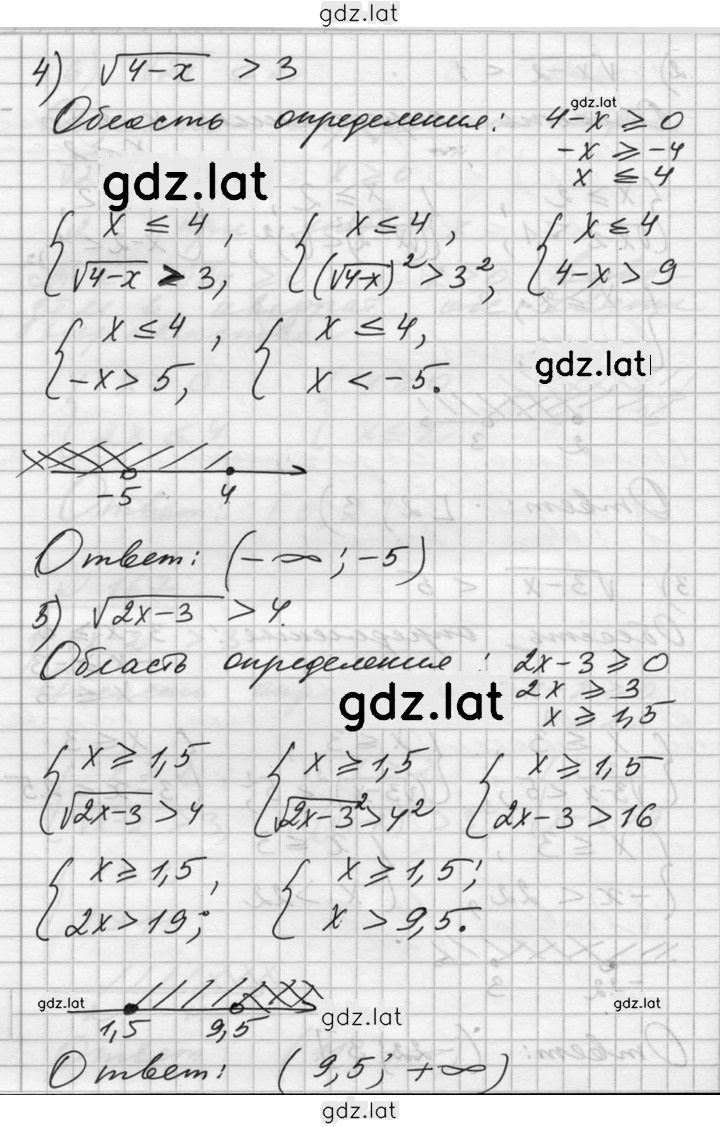 gdz.lat
4) √(4-x) > 3
Область определения: 4-x ≥ 0
gdz.lat
-x ≥ -4
x ≤ 4
gdz.lat
{ x ≤ 4, { x ≤ 4, { x ≤ 4
{ √(4-x) > 3, { (√(4-x))² > 3², { 4-x > 9
{ x ≤ 4, { x ≤ 4,
{ -x > 5, { x < -5.
gdz.lat
-5 4
Ответ: (-∞; -5)
5) √(2x-3) > 4.
Область определения: 2x-3 ≥ 0
2x ≥ 3
x ≥ 1,5
gdz.lat
{ x ≥ 1,5 { x ≥ 1,5 { x ≥ 1,5
{ √(2x-3) > 4 { √(2x-3)² > 4² { 2x-3 > 16
{ x ≥ 1,5, { x ≥ 1,5;
{ 2x > 19; { x > 9,5.
gdz.lat
1,5 9,5
gdz.lat
gdz.lat
Ответ: (9,5; +∞)
gdz.lat